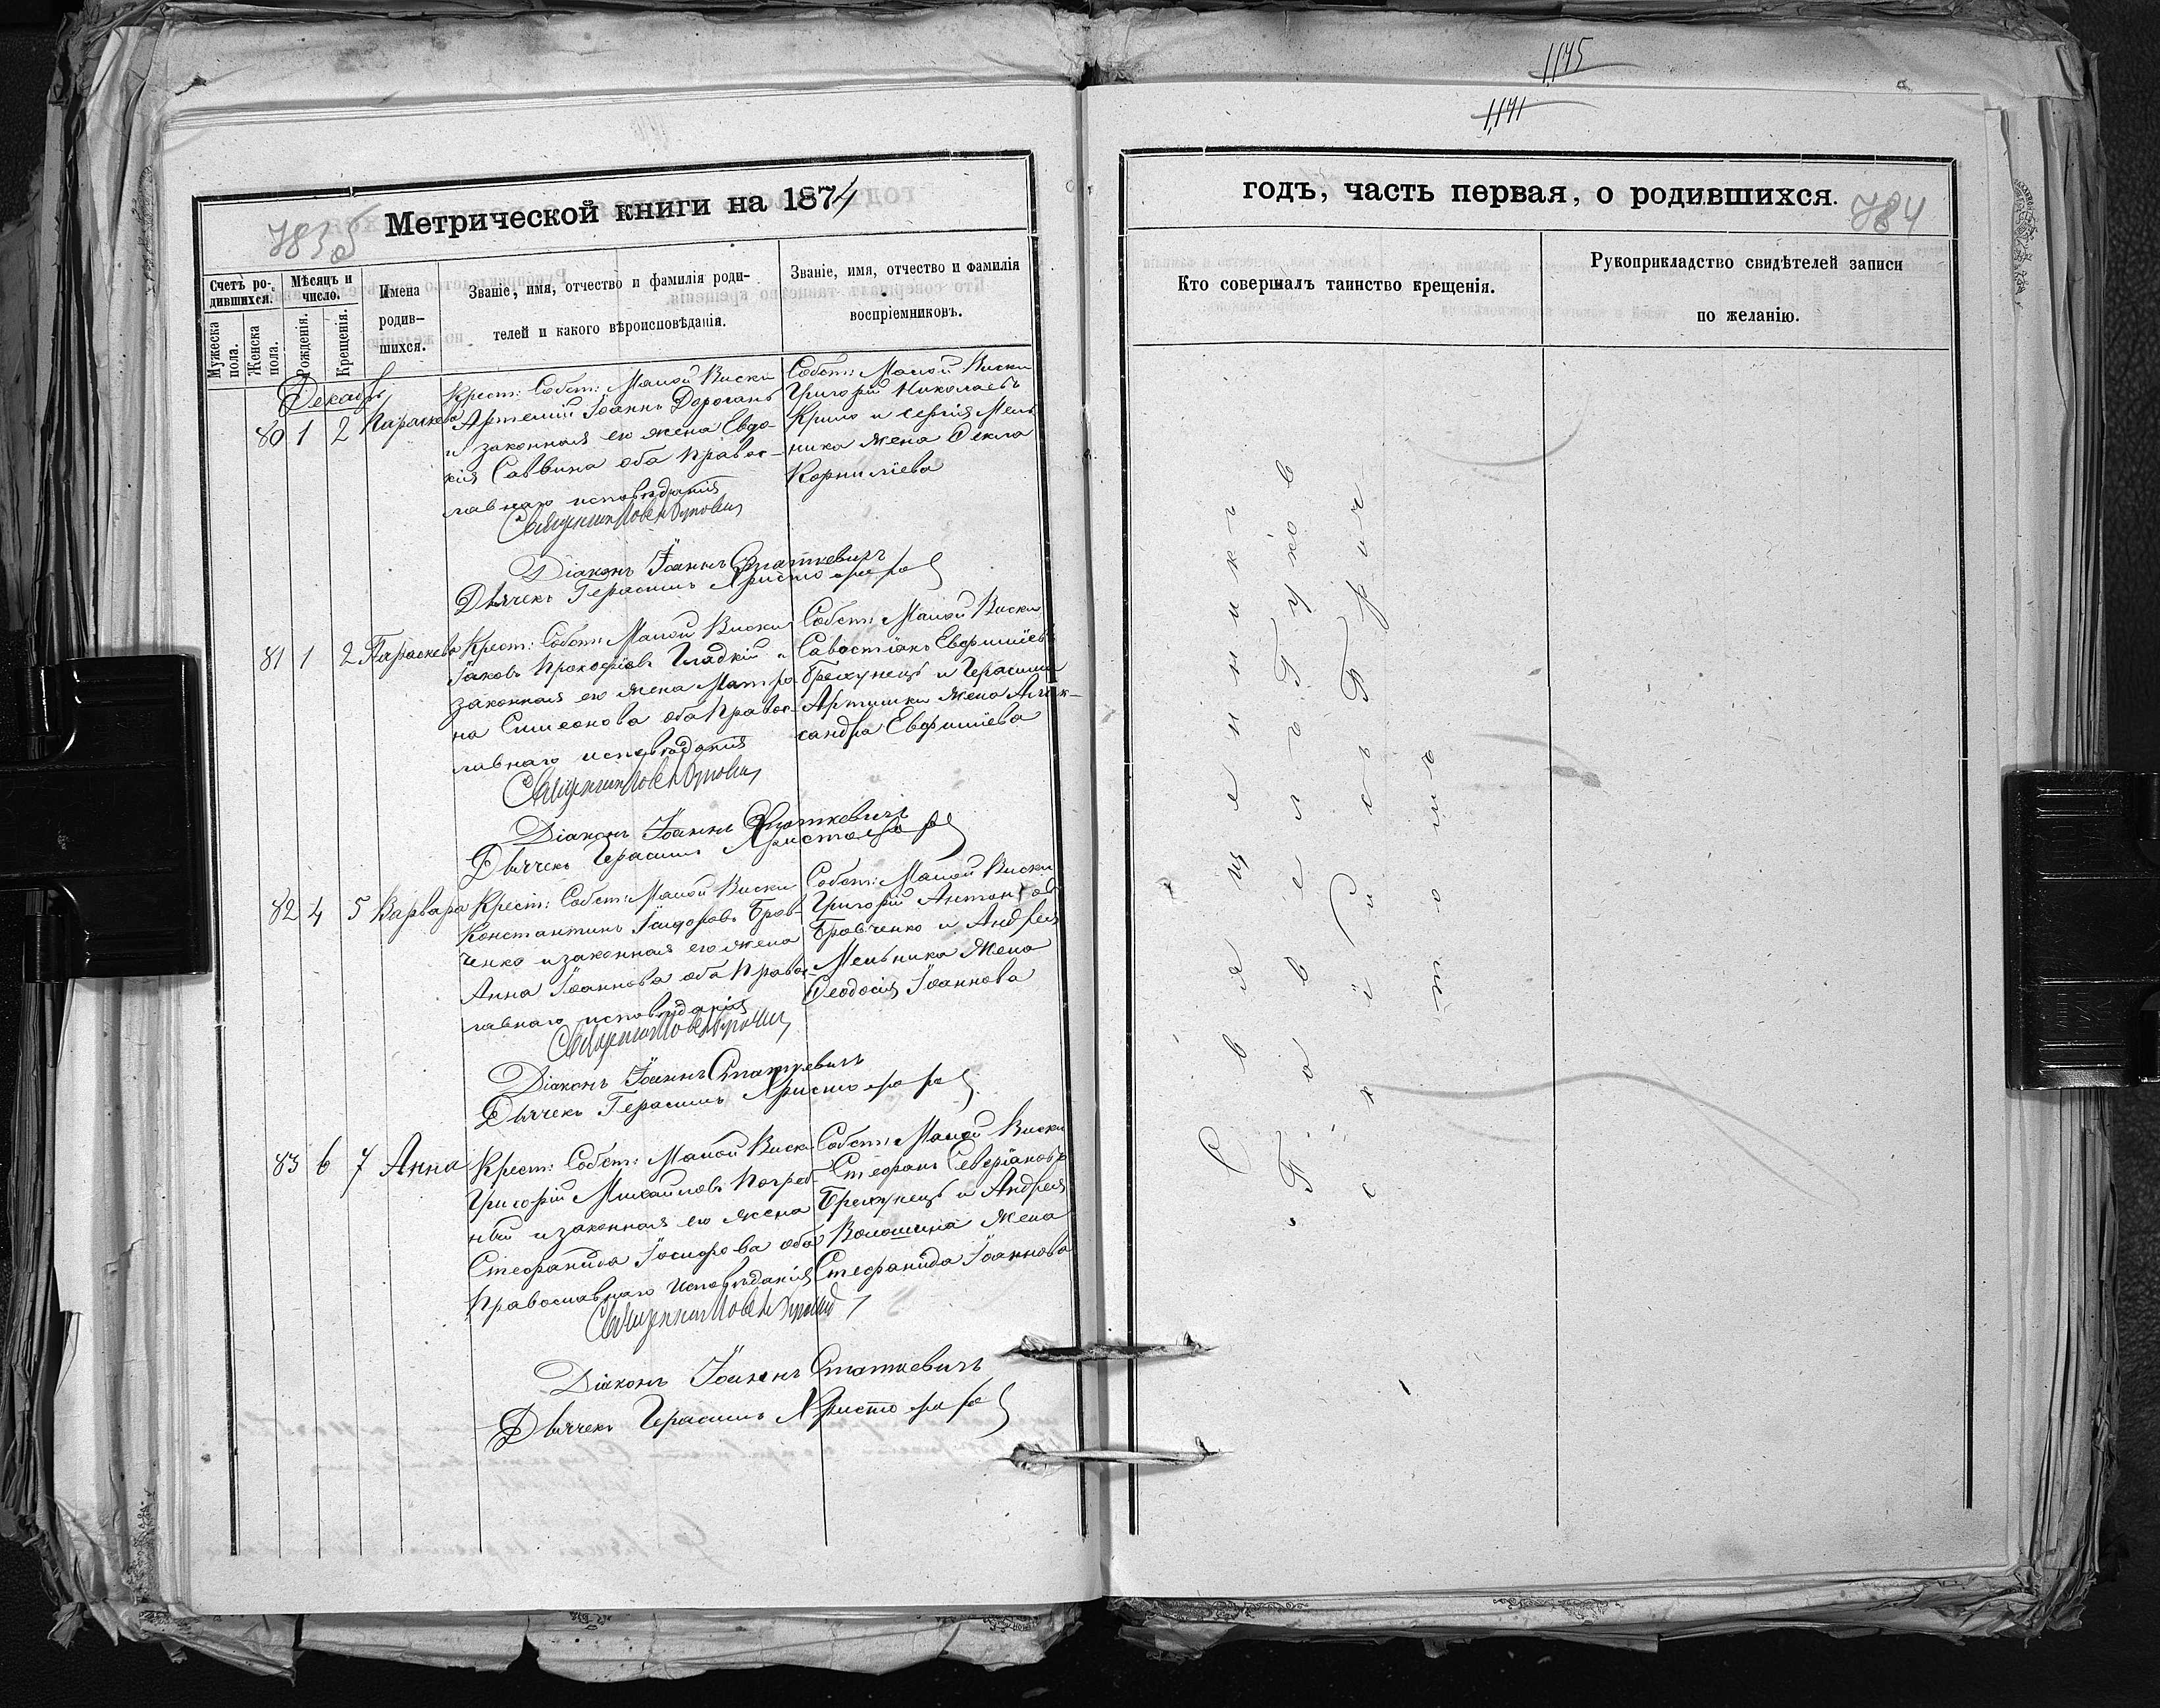 1175
1171
783 об
Метрической книги на 1874
Счетъ родившихся.
Мужеска пола.
Женска пола.
Мѣсяцъ и число.
Рожденія.
Крещенія.
Имена родившихся.
Званіе, имя, отчество и фамилія роди-
телей и какого вѣроисповѣданія.
Званіе, имя, отчество и фамилія
воспріемниковъ.
Декабрь
80 1 2 Параскева
Крест: Собст: Малой Виски
Артемій Іоаннъ Дороганъ
и законная его жена Евдо-
кія Саввина оба Правос-
лавнаго исповѣданія
Собст: Малой Виски
Григорій Николаевъ
Крило и Сергія Мель
ника жена Ѳекла
Корниліева
Священникъ
Діаконъ Іоаннъ Статкевичъ
Дьячекъ Герасимъ Христофоро
81 1 2 Параскева
Крест: Собст: Малой Виски
Іаковъ Прокофіевъ Гладкій и
законная его жена Матро
на Симеонова оба Правос-
лавнаго исповѣданія
Собст: Малой Виски
Савостіанъ Евфиміевъ
Брехунецъ и Герасима
Артишки жена Алек-
сандра Евфиміева
Священникъ
Діаконъ Іоаннъ Статкевичъ
Дьячекъ Герасимъ Христофоро
82 4 5 Варвара
Крест: Собст: Малой Виски
Константинъ Ісидоровъ Бров-
ченко и законная его жена
Анна Іоаннова оба Правос-
лавнаго исповѣданія
Собст: Малой Виски
Григорій Антоновъ
Бровченко и Андрея
Мельника Жена
Ѳеодосія Іоаннова
Священникъ
Діаконъ Іоаннъ Статкевичъ
Дьячекъ Герасимъ Христофоро
83 6 7 Анна
Крест: Собст: Малой Виски
Григорій Михаиловъ Погреб-
ный и законная его жена
Стефанида Іосифова оба
Православнаго исповѣданія
Собст: Малой Виски
Стефанъ Северіановъ
Брехунецъ и Андрея
Волошина Жена
Стефанида Іоаннова
Священникъ
Діаконъ Іоаннъ Статкевичъ
Дьячекъ Герасимъ Христофоро
годъ, часть первая, о родившихся.
784
Кто совершалъ таинство крещенія.
Рукоприкладство свидѣтелей записи
по желанію.
Священникъ
Павелъ